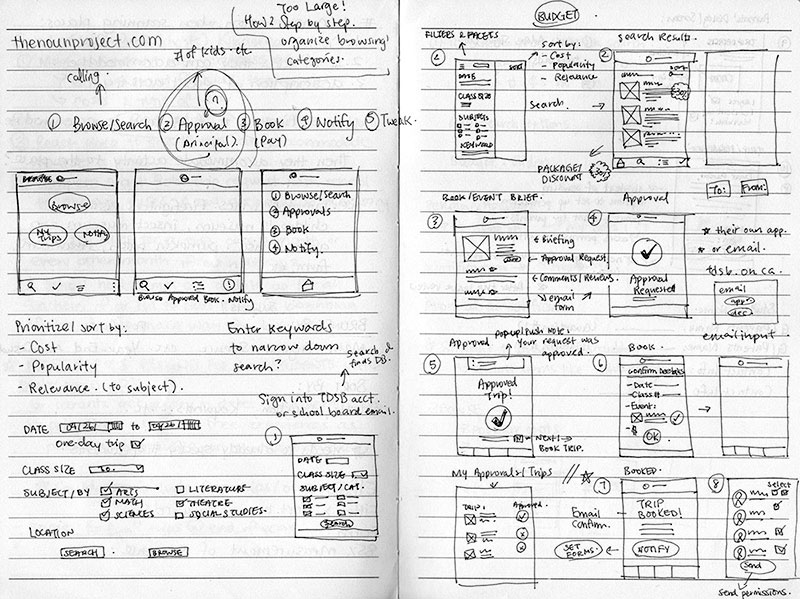 Too Large!
How? Step by step.
organize browsing
categories.
thenounproject.com
# of kids. etc
calling.
?
① Browse/Search ② Approval ③ Book ④ Notify ⑤ Tweak.
(Principal). (Pay)
BROWSE
Browse
My Trips
Notify
① Browse/Search
② Approvals
③ Book
④ Notify.
Browse Approved Book. Notify
Prioritize/sort by:
- Cost
- Popularity
- Relevance. (to subject).
Enter Keywords
to narrow down
search?
search &
finds DB.
Sign into TDSB acct.
or school board email.
DATE 09/26/ to 09/26/
one-day trip
CLASS SIZE
SUBJECT/BY ARTS LITERATURE
MATH THEATRE
SCIENCES SOCIAL STUDIES.
LOCATION
SEARCH BROWSE
1
DATE
CLASS SIZE
SUBJECT/CAT.
Search
BUDGET
FILTERS & FACETS
①
sort by:
- Cost
- Popularity
- Relevance
SORT
DATE
CLASS SIZE
SUBJECTS
KEYWORD
search.
② Search Results.
SORT
50%
PACKAGE/
DISCOUNT
50%
BOOK/EVENT BRIEF.
③
Briefing
Approval Request.
Comments/Reviews.
email
form
Approval
④
Approval
Requested
To: From:
* their own app.
* or email.
tdsb.on.ca.
email
app
dec
email input
Approved
⑤
popup/Push Note:
Your request was
approved.
Approved
Trip!
Next:
BOOK TRIP.
⑥ Book.
Confirm Details
- Date
- Class#
- Event:
- $
OK
My Approvals/Trips
TRIP: Approved.
Email
Confirm.
SET
FORMS.
BOOKED.
⑦
TRIP
BOOKED!
NOTIFY
⑧ Select
Send
send permissions.